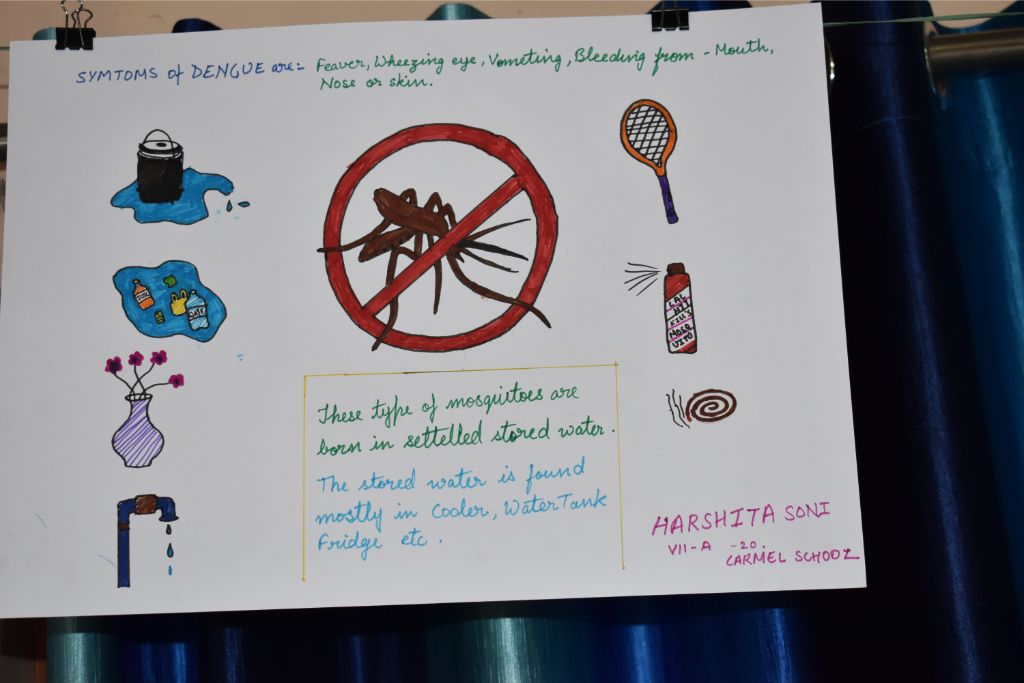 SYMTOMS of DENGUE are:- Feaver, Wheezing eye, Vometing, Bleeding from - Mouth,
Nose or skin.
LAL
HIT
KILLS
MOSQ
UITO
These type of mosquitoes are
born in settelled stored water.
The stored water is found
mostly in Cooler, Water Tank
Fridge etc.
HARSHITA SONI
VII-A -20.
CARMEL SCHOOL